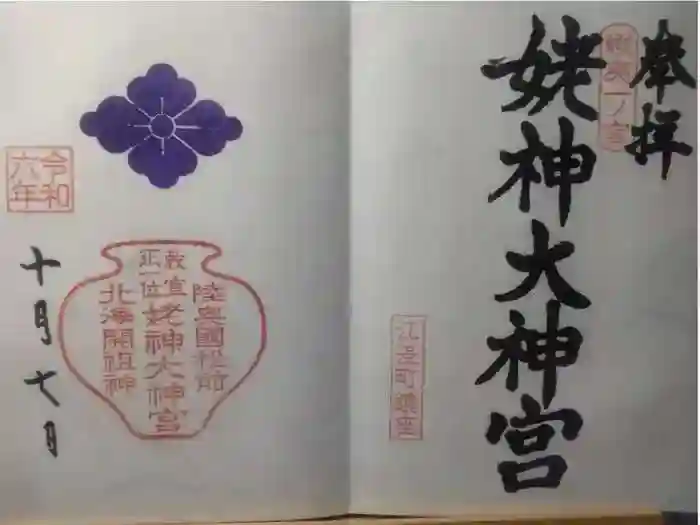 奉拝
蝦夷一ノ宮
姥神大神宮
江差町鎮座
令和
六年
陸奥國松前
勅宣
正一位
姥神大神宮
北海開祖神
十月七日